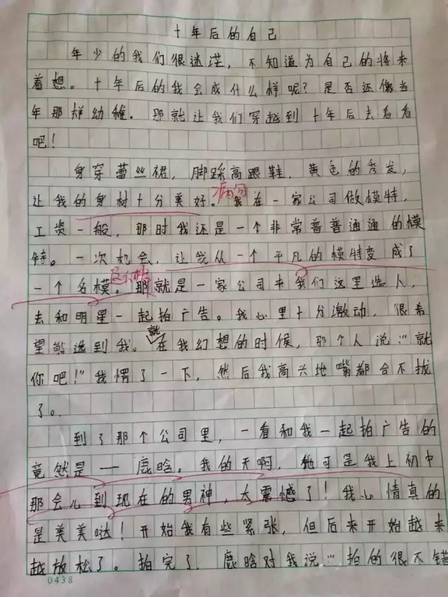 十年后的自己
年少的我们很迷茫，不知道为自己的将来
着想。十年后的我会成什么样呢？是否还像当
年那样幼稚。那就让我们穿越到十年后去看看
吧！
身穿蕾丝裙，脚踩高跟鞋，黄色的秀发，
让我的身材十分美好。我在一家公司做模特，
工资一般，那时我还是一个非常普普通通的模
特。一次机会，让我从一个平凡的模特变成了
一个名模。那就是一家公司来我们这里选人，
去和明星一起拍广告。我心里十分激动，很希
望能选到我。在我幻想的时候，那个人说："就
你吧！"我愣了一下，然后我高兴地嘴都合不拢
了。
到了那个公司里，一看和我一起拍广告的
竟然是——鹿晗。我的天啊，他可是我上初中
那会儿到现在的男神，太震撼了！我心情真的
是美美哒！开始我有些紧张，但后来开始越来
越放松了。拍完了，鹿晗对我说："拍的很不错
0438